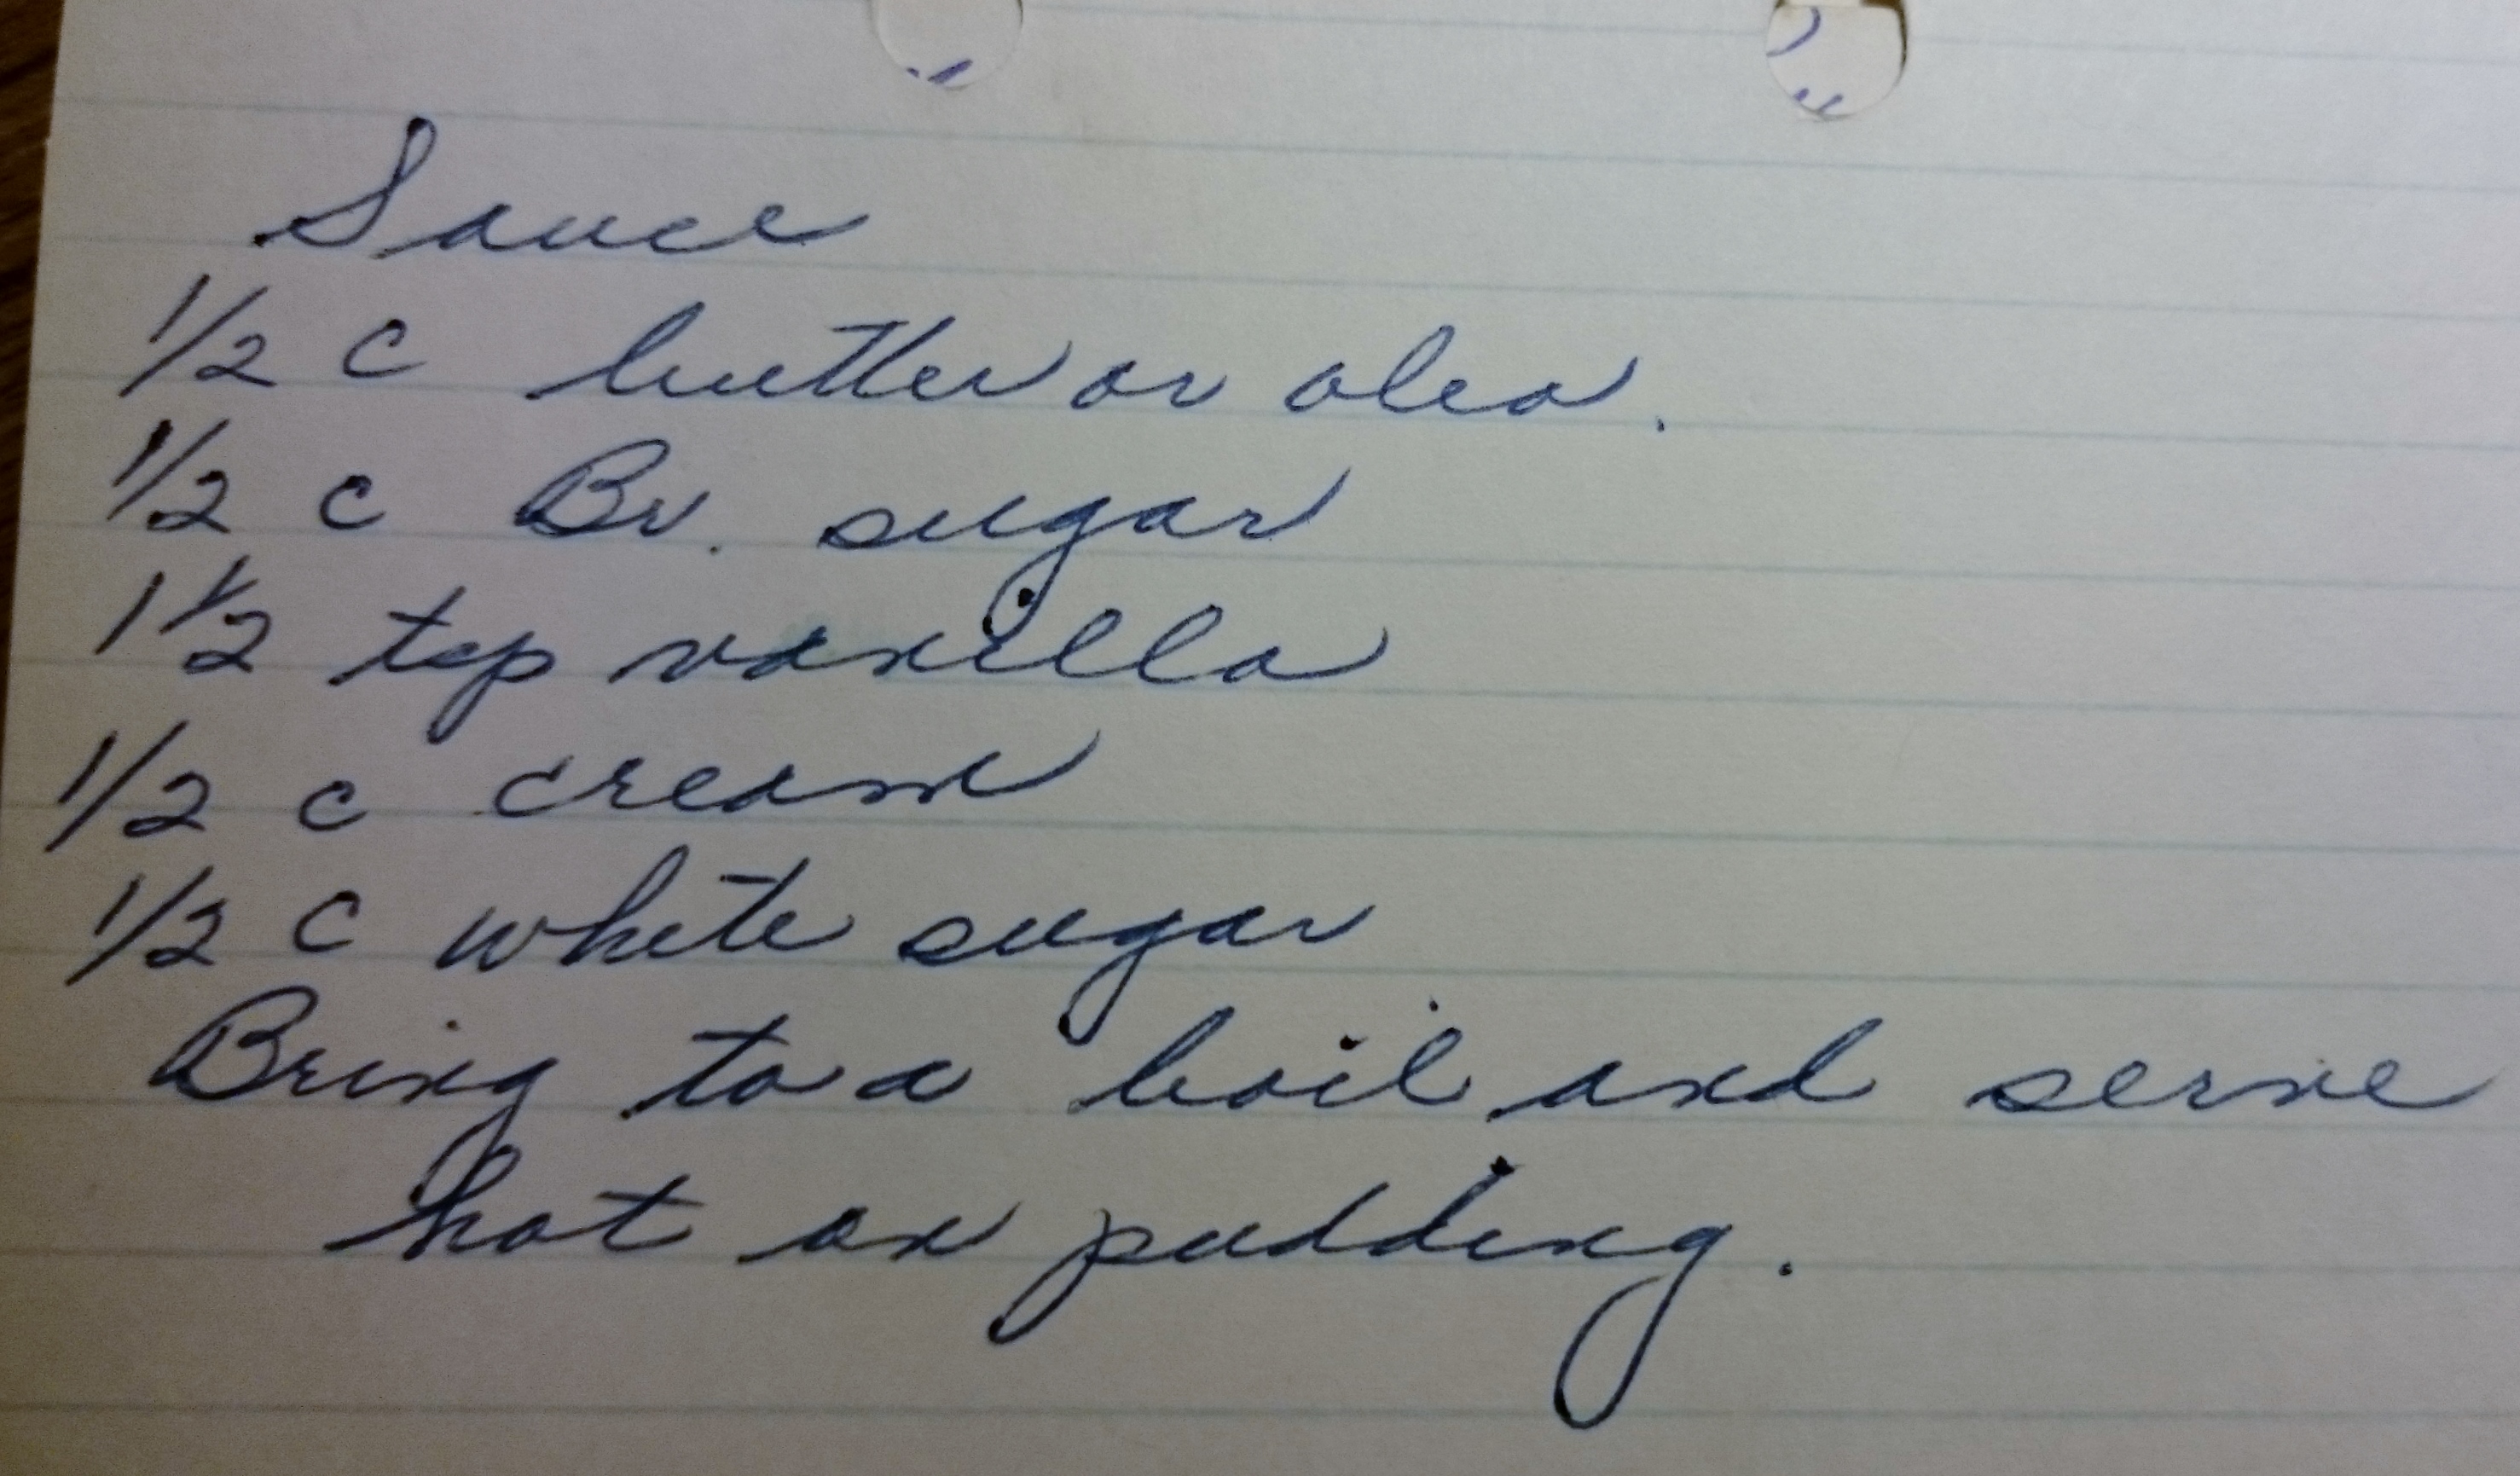 Sauce
1/2 c butter or oleo.
1/2 c Br. sugar
1 1/2 tsp vanilla
1/2 c cream
1/2 c white sugar
Bring to a boil and serve
hot on pudding.